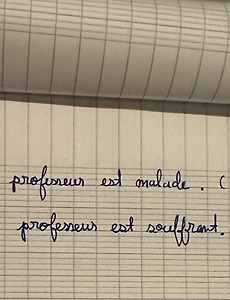 professeur est malade. (
professeur est souffrant.